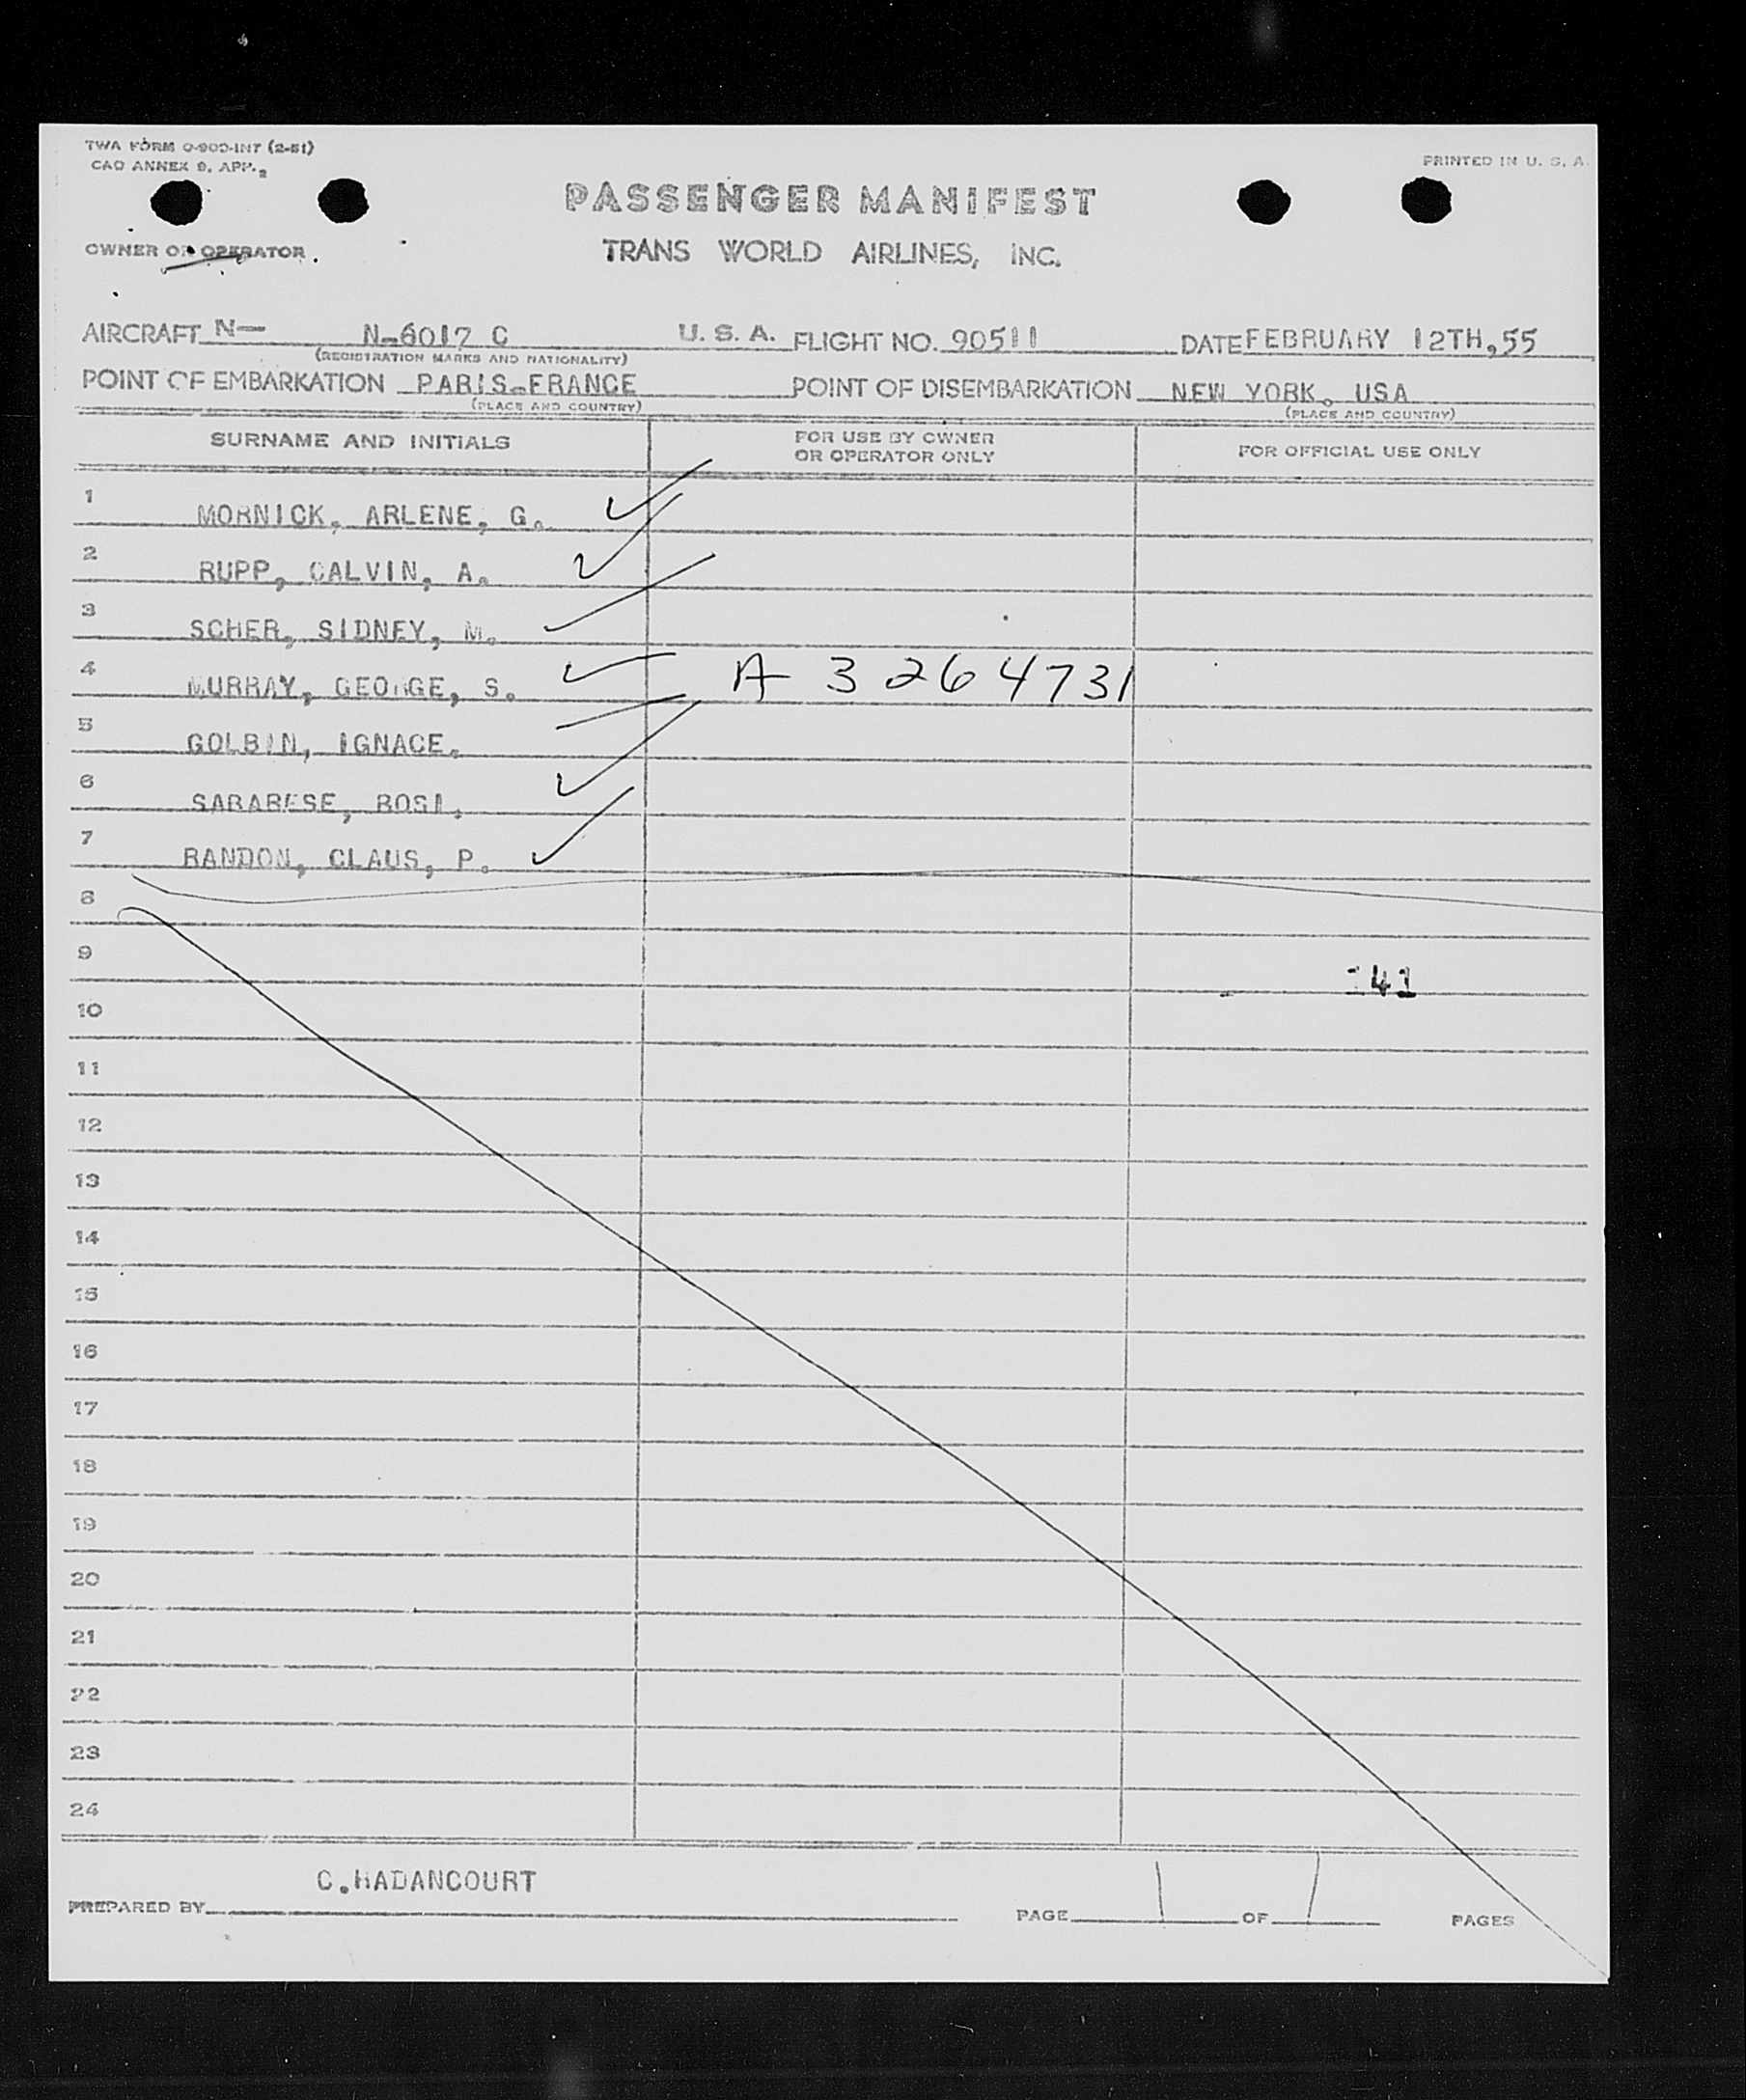 TWA FORM O-900-INT (2-51)
CAO ANNEX 9, APP. 2
PRINTED IN U. S. A.
PASSENGER MANIFEST
OWNER OR OPERATOR
TRANS WORLD AIRLINES, INC.
AIRCRAFT N— N-6017 C U. S. A. FLIGHT NO. 90511 DATE FEBRUARY 12TH,55
(REGISTRATION MARKS AND NATIONALITY)
POINT OF EMBARKATION PARIS-FRANCE POINT OF DISEMBARKATION NEW YORK, USA
(PLACE AND COUNTRY) (PLACE AND COUNTRY)
SURNAME AND INITIALS FOR USE BY OWNER OR OPERATOR ONLY FOR OFFICIAL USE ONLY
1 MORNICK, ARLENE, G.
2 RUPP, CALVIN, A.
3 SCHER, SIDNEY, M.
4 MURRAY, GEORGE, S. A 3264731
5 GOLBIN, IGNACE.
6 SABARESE, ROSA.
7 RANDON, CLAUS, P.
8
9
141
10
11
12
13
14
15
16
17
18
19
20
21
22
23
24
C.HADANCOURT
PREPARED BY PAGE 1 OF 1 PAGES